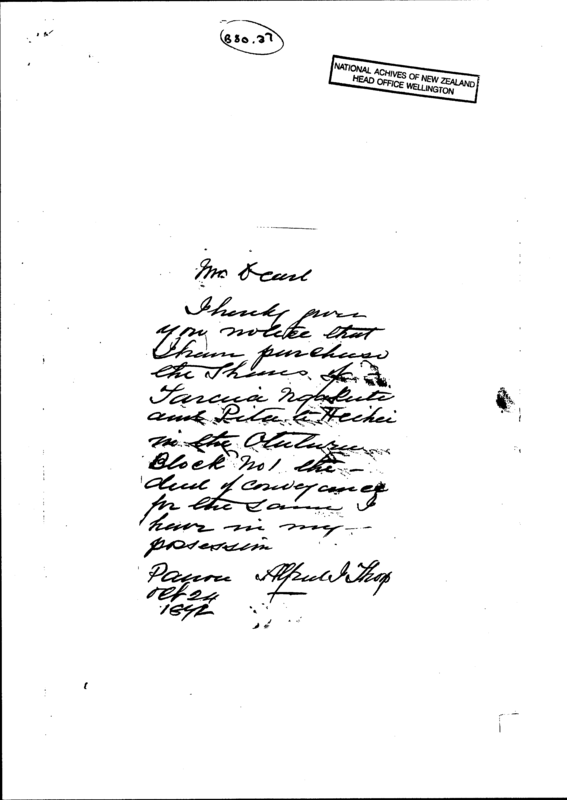 B80.27
NATIONAL ACHIVES OF NEW ZEALAND
HEAD OFFICE WELLINGTON
Mr
I hereby give
you notice that
I have purchase
the Shares of
Tareua
and Rita te Heihei
in the
Block No 1 the -
deed of conveyance
for the same I
have in my -
possession
Alfred J Thop
Oct 24